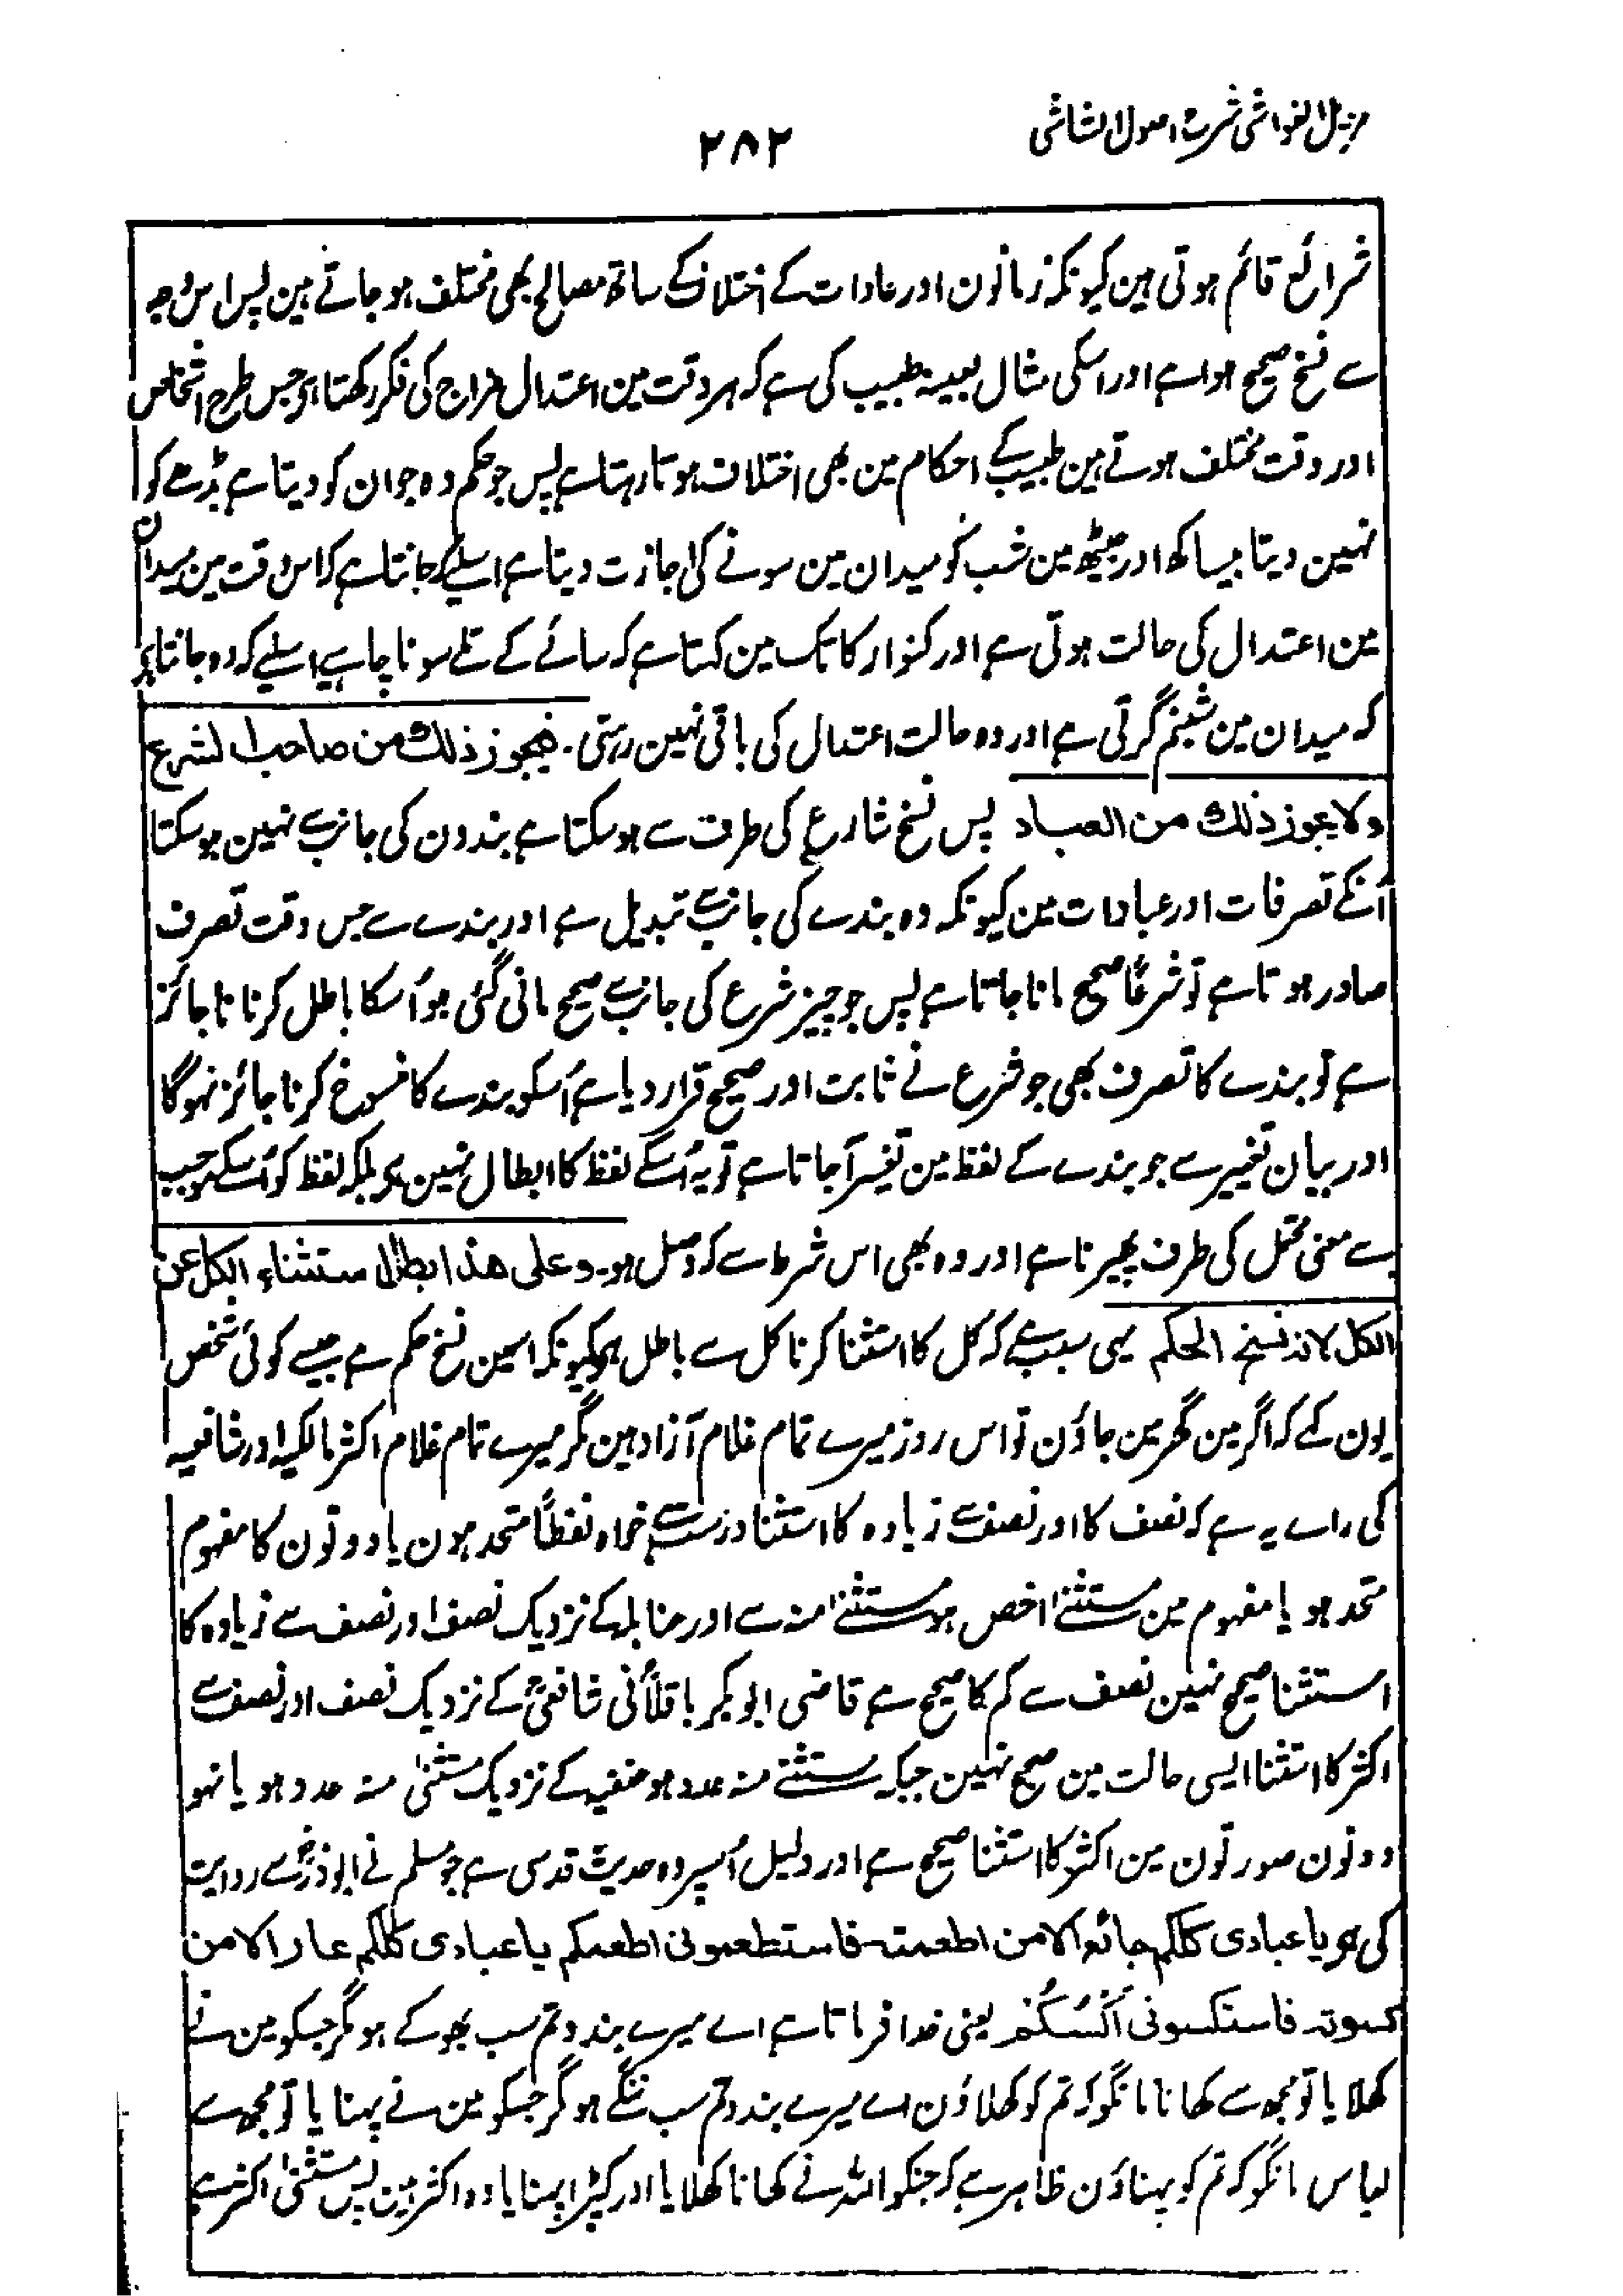 مزیل الغواشی شرح اصول الشاشی
۲۸۲
شرائع قائم ہوتی ہین کیونکہ زمانون اور عادات کے اختلاف کے ساتھ مصالح بھی مختلف ہو جاتے ہین پس اس وجہ
سے نسخ صحیح ہوا ہے اور اسکی مثال بعینہ طبیب کی ہے کہ ہر وقت مین اعتدال مزاج کی فکر رکھتا ہی جس طرح اشخاص
اور وقت مختلف ہوتے ہین طبیب کے احکام مین بھی اختلاف ہوتا رہتا ہے پس جو حکم وہ جوان کو دیتا ہے بڈھے کو
نہین دیتا بیساکھ اور جیٹھ مین شب کو میدان مین سونے کی اجازت دیتا ہے اسلیے کہ جانتا ہے کہ اس وقت مین میدان
مین اعتدال کی حالت ہوتی ہے اور کنوار کاتک مین کہتا ہے کہ سائے کے تلے سونا چاہیے اسلیے کہ وہ جانتا ہی
کہ میدان مین شبنم گرتی ہے اور وہ حالت اعتدال کی باقی نہین رہتی۔ فیجوز ذلك من صاحب الشرع
ولا یجوز ذلك من العباد پس نسخ شارع کی طرف سے ہو سکتا ہے بندون کی جانب سے نہین ہو سکتا
اُنکے تصرفات اور عبادات مین کیونکہ وہ بندے کی جانب سے تبدیل ہے اور بندے سے جس وقت تصرف
صادر ہوتا ہے تو شرعًا صحیح مانا جاتا ہے پس جو چیز شرع کی جانب سے صحیح مانی گئی ہو اُسکا باطل کرنا ناجائز
ہے تو بندے کا تصرف بھی جو شرع نے ثابت اور صحیح قرار دیا ہے اُسکو بندے کا منسوخ کرنا جائز نہوگا
اور بیان تغییر سے جو بندے کے لفظ مین تغیر آجاتا ہے تو یہ اُسکے لفظ کا ابطال نہین ہی بلکہ لفظ کو اُسکے موجب
سے معنی محتمل کی طرف پھیرنا ہے اور وہ بھی اس شرط سے کہ وصل ہو۔ وعلی هذا بطل استثناء الکل عن
الکل لانه نسخ الحکم یہی سبب ہے کہ کل کا استثنا کرنا کل سے باطل ہی کیونکہ اسمین نسخ حکم ہے جیسے کوئی شخص
یون کہے کہ اگر مین گھر مین جاؤن تو اس روز میرے تمام غلام آزاد ہین مگر میرے تمام غلام اکثر مالکیہ اور شافعیہ
کی راے یہ ہے کہ نصف کا اور نصف سے زیادہ کا استثنا درست ہے خواہ لفظاً متحد ہون یا دونون کا مفہوم
متحد ہو یا مفہوم مین مستثنےٰ اخص ہو مستثنےٰ منہ سے اور حنابلہ کے نزدیک نصف اور نصف سے زیادہ کا
استثنا صحیح نہین نصف سے کم کا صحیح ہے قاضی ابو بکر باقلانی شافعیؒ کے نزدیک نصف اور نصف سے
اکثر کا استثنا ایسی حالت مین صحیح نہین جبکہ مستثنے منہ عدد ہو حنفیہ کے نزدیک مستثنیٰ منہ عدد ہو یا نہو
دونون صورتون مین اکثر کا استثنا صحیح ہے اور دلیل اُسپر وہ حدیث قدسی ہے جو مسلم نے ابوذرؓ سے روایت
کی ہی یا عبادی کلکم جائع الا من اطعمتہ فاستطعمونی اطعمکم یا عبادی کلکم عار الا من
کسوتہ فاستکسونی اَکْسُکُمْ یعنی خدا فرماتا ہے اے میرے بندو تم سب بھوکے ہو مگر جسکو مین نے
کھلایا تو مجھ سے کھانا مانگو کہ تم کو کھلاؤن اے میرے بندو تم سب ننگے ہو مگر جسکو مین نے پہنایا تو مجھ سے
لباس مانگو کہ تم کو پہناؤن ظاہر ہے کہ جنکو اللہ نے کھانا کھلایا اور کپڑا پہنایا وہ اکثر ہین پس مستثنیٰ اکثر ہے